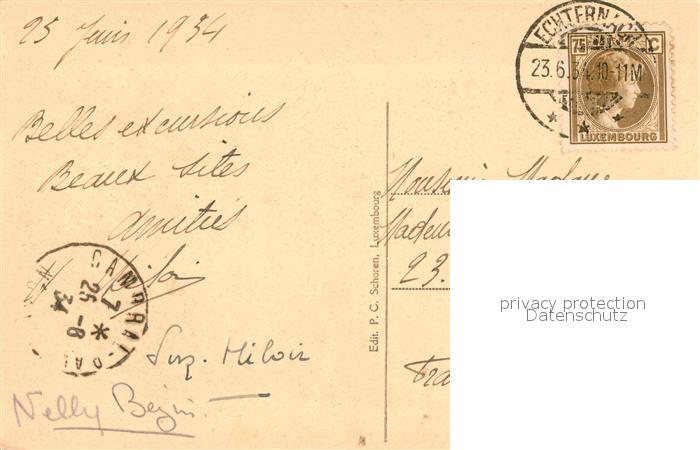 23 Juin 1934
Belles excursions
Beaux sites
Amitiés
Suz. Miloir
Nelly
ECHTERNACH
23.6.34.10-11M
75 C
LUXEMBOURG
CAMBRAI
7
25-6
34
Edit. P. C. Schoren, Luxembourg
Monsieur Madame
23.
Fra
privacy protection
Datenschutz